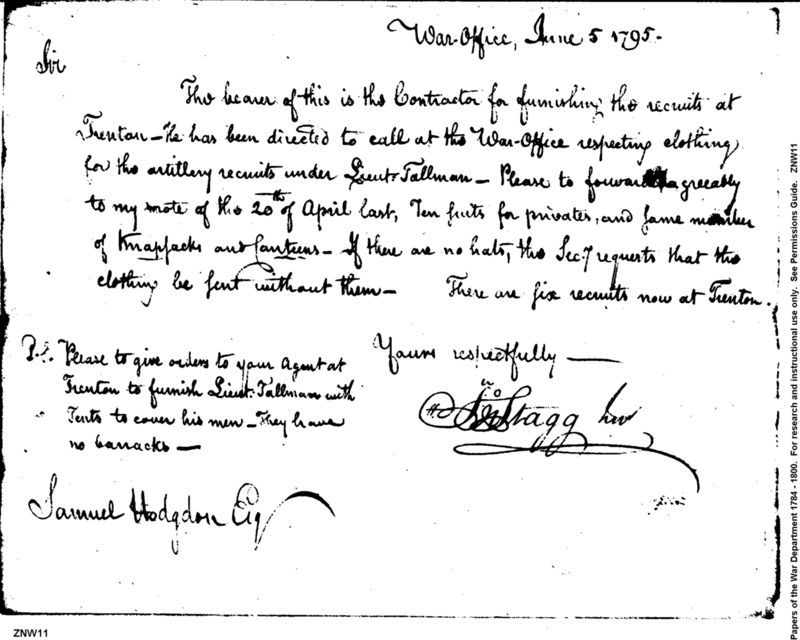 War-Office, June 5 1795.
Sir
The bearer of this is the Contractor for furnishing the recruits at
Trenton - He has been directed to call at the War-Office respecting clothing
for the artillery recruits under Lieut Tallman - Please to forward agreeably
to my note of the 20th of April last, Ten suits for privates, and same number
of Knapsacks and Canteens - If there are no hats, the Secy requests that the
clothing be sent without them - There are six recruits now at Trenton.
Yours respectfully
Jno Stagg Junr
P.S. Please to give orders to your Agent at
Trenton to furnish Lieut. Tallman with
Tents to cover his men - They have
no barracks -
Samuel Hodgdon Esq
ZNW11
Papers of the War Department 1784 - 1800. For research and instructional use only. See Permissions Guide. ZNW11